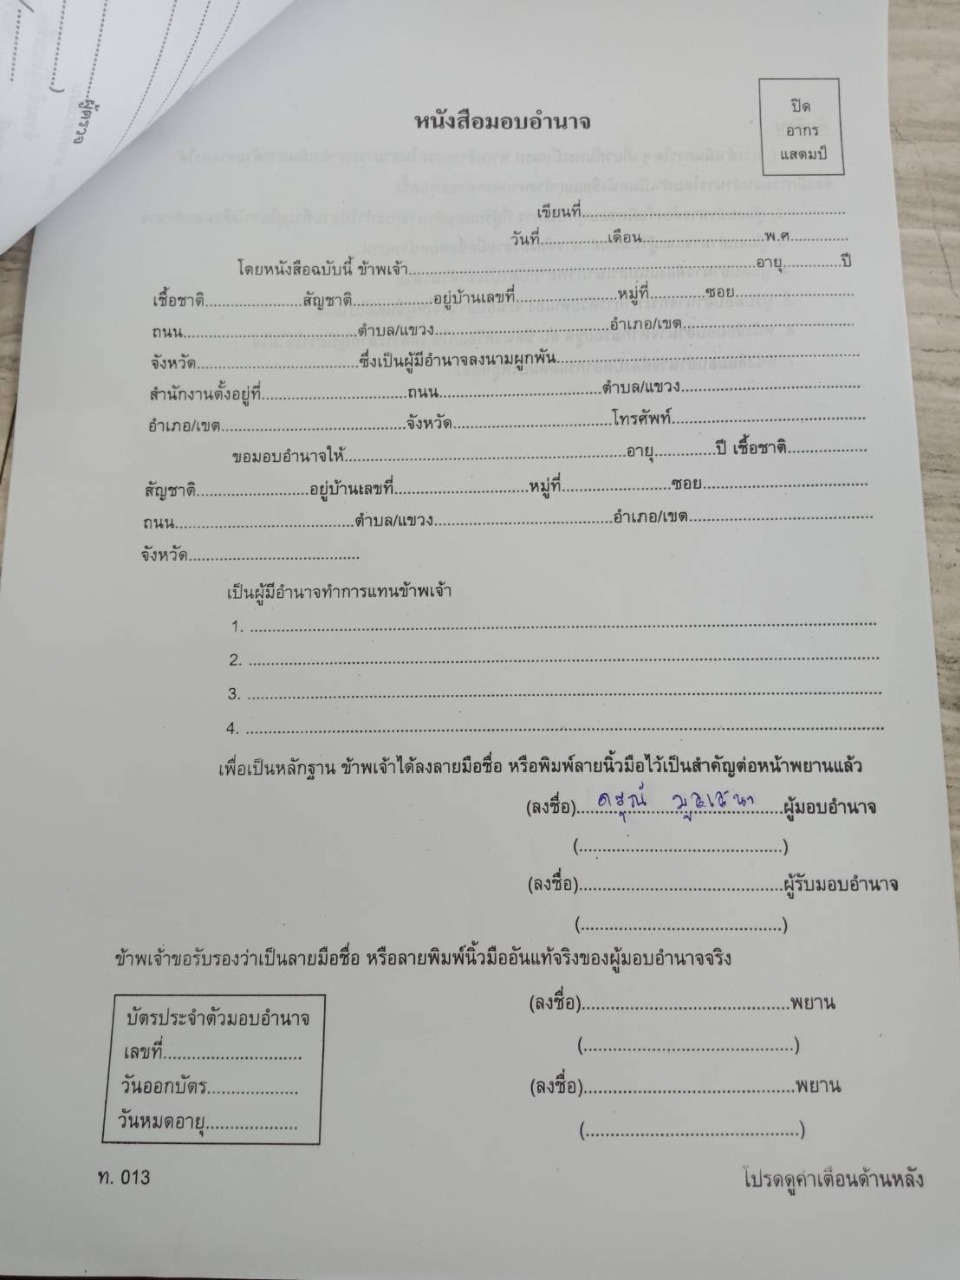 ผู้ตรวจ
หนังสือมอบอำนาจ
ปิด
อากร
แสตมป์
เขียนที่
วันที่...............เดือน...........................พ.ศ..............
โดยหนังสือฉบับนี้ ข้าพเจ้า...............................................................อายุ............ปี
เชื้อชาติ.......................สัญชาติ...................อยู่บ้านเลขที่.......................หมู่ที่.............ซอย......................
ถนน........................................ตำบล/แขวง.......................................อำเภอ/เขต.......................................
จังหวัด....................................ซึ่งเป็นผู้มีอำนาจลงนามผูกพัน..................................................................
สำนักงานตั้งอยู่ที่.................................ถนน.....................................ตำบล/แขวง........................................
อำเภอ/เขต..........................................จังหวัด...................................โทรศัพท์............................................
ขอมอบอำนาจให้...............................................................อายุ..............ปี เชื้อชาติ..................
สัญชาติ.........................อยู่บ้านเลขที่..............................หมู่ที่.........................ซอย.....................................
ถนน.........................................ตำบล/แขวง.........................................อำเภอ/เขต.........................................
จังหวัด.......................................
เป็นผู้มีอำนาจทำการแทนข้าพเจ้า
1.
2.
3.
4.
เพื่อเป็นหลักฐาน ข้าพเจ้าได้ลงลายมือชื่อ หรือพิมพ์ลายนิ้วมือไว้เป็นสำคัญต่อหน้าพยานแล้ว
(ลงชื่อ)...............................................ผู้มอบอำนาจ
(...............................................)
(ลงชื่อ)...............................................ผู้รับมอบอำนาจ
(...............................................)
ข้าพเจ้าขอรับรองว่าเป็นลายมือชื่อ หรือลายพิมพ์นิ้วมืออันแท้จริงของผู้มอบอำนาจจริง
(ลงชื่อ)...............................................พยาน
(...............................................)
(ลงชื่อ)...............................................พยาน
(...............................................)
บัตรประจำตัวมอบอำนาจ
เลขที่..............................
วันออกบัตร....................
วันหมดอายุ....................
ท. 013
โปรดดูคำเตือนด้านหลัง